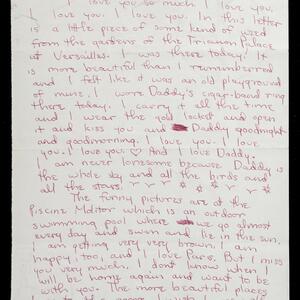 I love you so much. I love you.
I love you. I love you. In this letter
is a little piece of some kind of weed
from the gardens of the Trianon Palace
at Versailles. I was there today! It
is more beautiful than I remembered
and I felt like it was an old playground
of mine. I wore Daddy's cigar-band ring
there today. I carry it all the time
and I wear the gold locket and open
it and kiss you and Daddy goodnight
and goodmorning. I love you. I love
you. I love you. ♡ And I love Daddy.
I am never lonesome because Daddy is
the whole sky and all the birds and
all the stars.
The funny pictures are at the
Piscine Molitor which is an outdoor
swimming pool where we go almost
every day and swim and lie in the sun.
I am getting very very brown. I am
happy, too, and I love Paris. But I miss
you very much. I don't know when I
will be home again and want to be
with you. The more beautiful places